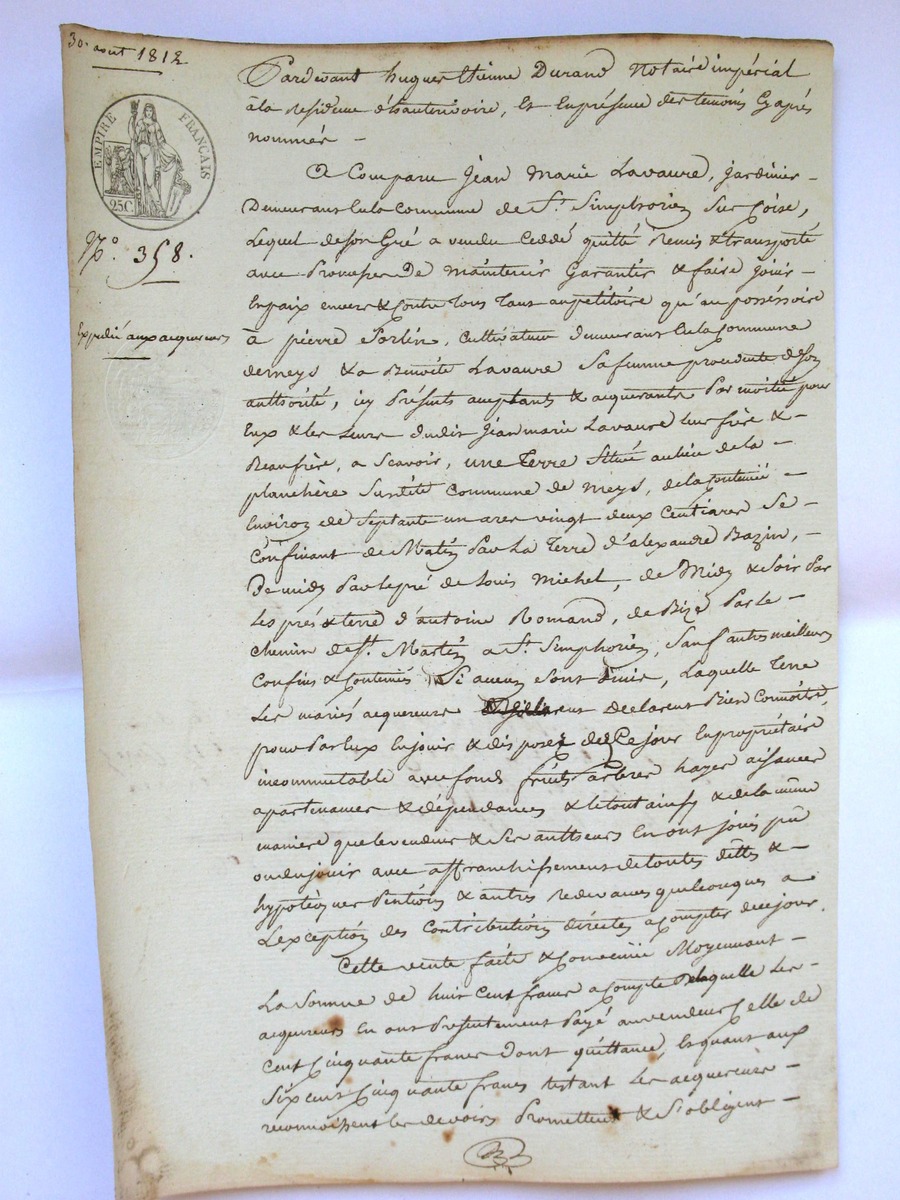 30. aout 1812
EMPIRE FRANÇAIS
25C
N.o 358.
Expedié aux acquereurs
Pardevant hugues Etienne Durand Notaire impérial
a la residence d'hauterivoire, Et En présence des temoins Cy après
nommés –
A Comparu Jean Marie Lavaure, jardinier –
Demeurant En la Commune de St. Simphorien Sur Coise,
Lequel de Son Gré a vendu Ceddé quitté Remis & transporté
avec Promesse De maintenir garantir & faire jouir –
En paix envers & Contre tous tant au petitoire qu'au possessoire
à pierre, Cultivateur demeurant En la Commune
de meys & a Benoite Lavaure Sa femme procedante de Son
authorité, icy Présents acceptants & acquerants Par moitié pour
Eux & les leurs dudit Jean marie Lavaure leur frère & –
Beaufrère, a Scavoir, une Terre Située au lieu de la –
planchère Susdite Commune de meys, de la Contenüe –
Environ de Septante un ares vingt deux Centiares Se –
Confinant de Matin Par La Terre d'alexandre Bazin, –
De midy Par le pré de Louis Michel, de Midy & Soir Par
Les prés & terre d'antoine Romand, de Bize Par le –
chemin de St. Martin a St. Simphorien, Sauf autres meilleurs
Confins & Contenües Si aucuns Sont a dire, Laquelle terre
Les mariés acquereurs declarent Bien Connoitre,
pour Par Eux En jouir & disposer dès Ce jour En propriétaire
incommutable avec fonds fruits arbres hayes aisances
apartenances & dépendances & le tout ainsy & de la même
manière que le vendeur & Ses autheurs En ont joui pû
ou dû jouir avec affranchissement de toutes dettes & –
hypotèques Pentions & autres redevances quelconques a
L'exception des Contributions directes a Compter de ce jour.
Cette vente faite & Convenüe Moyennant –
La Somme de huit Cent francs a Compte de laquelle Les –
acquereurs En ont Présentement Payé au vendeur Celle de
Cent Cinquante francs Dont quittance, Et quant aux
Six Cent Cinquante francs restant les acquereurs –
reconnoissent les devoirs Promettent & S'obligent –